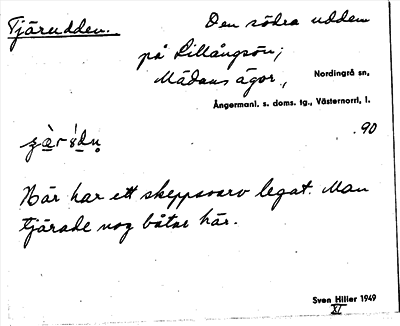 Tjärudden. Den södra udden
på Lillångsön;
Mädans ägor, Nordingrå sn,
Ångermanl. s. doms. tg., Västernorrl. l.
.90
Här har ett skeppsvarv legat. Man
tjärade nog båtar här.
Sven Hiller 1949
XI